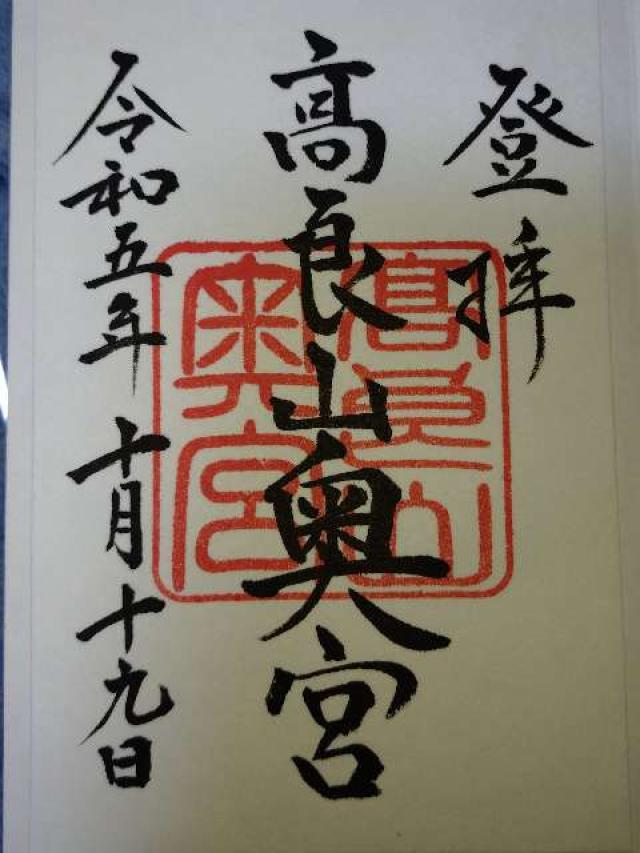 登拝
高良山奥宮
令和五年十月十九日
高良山
奥宮